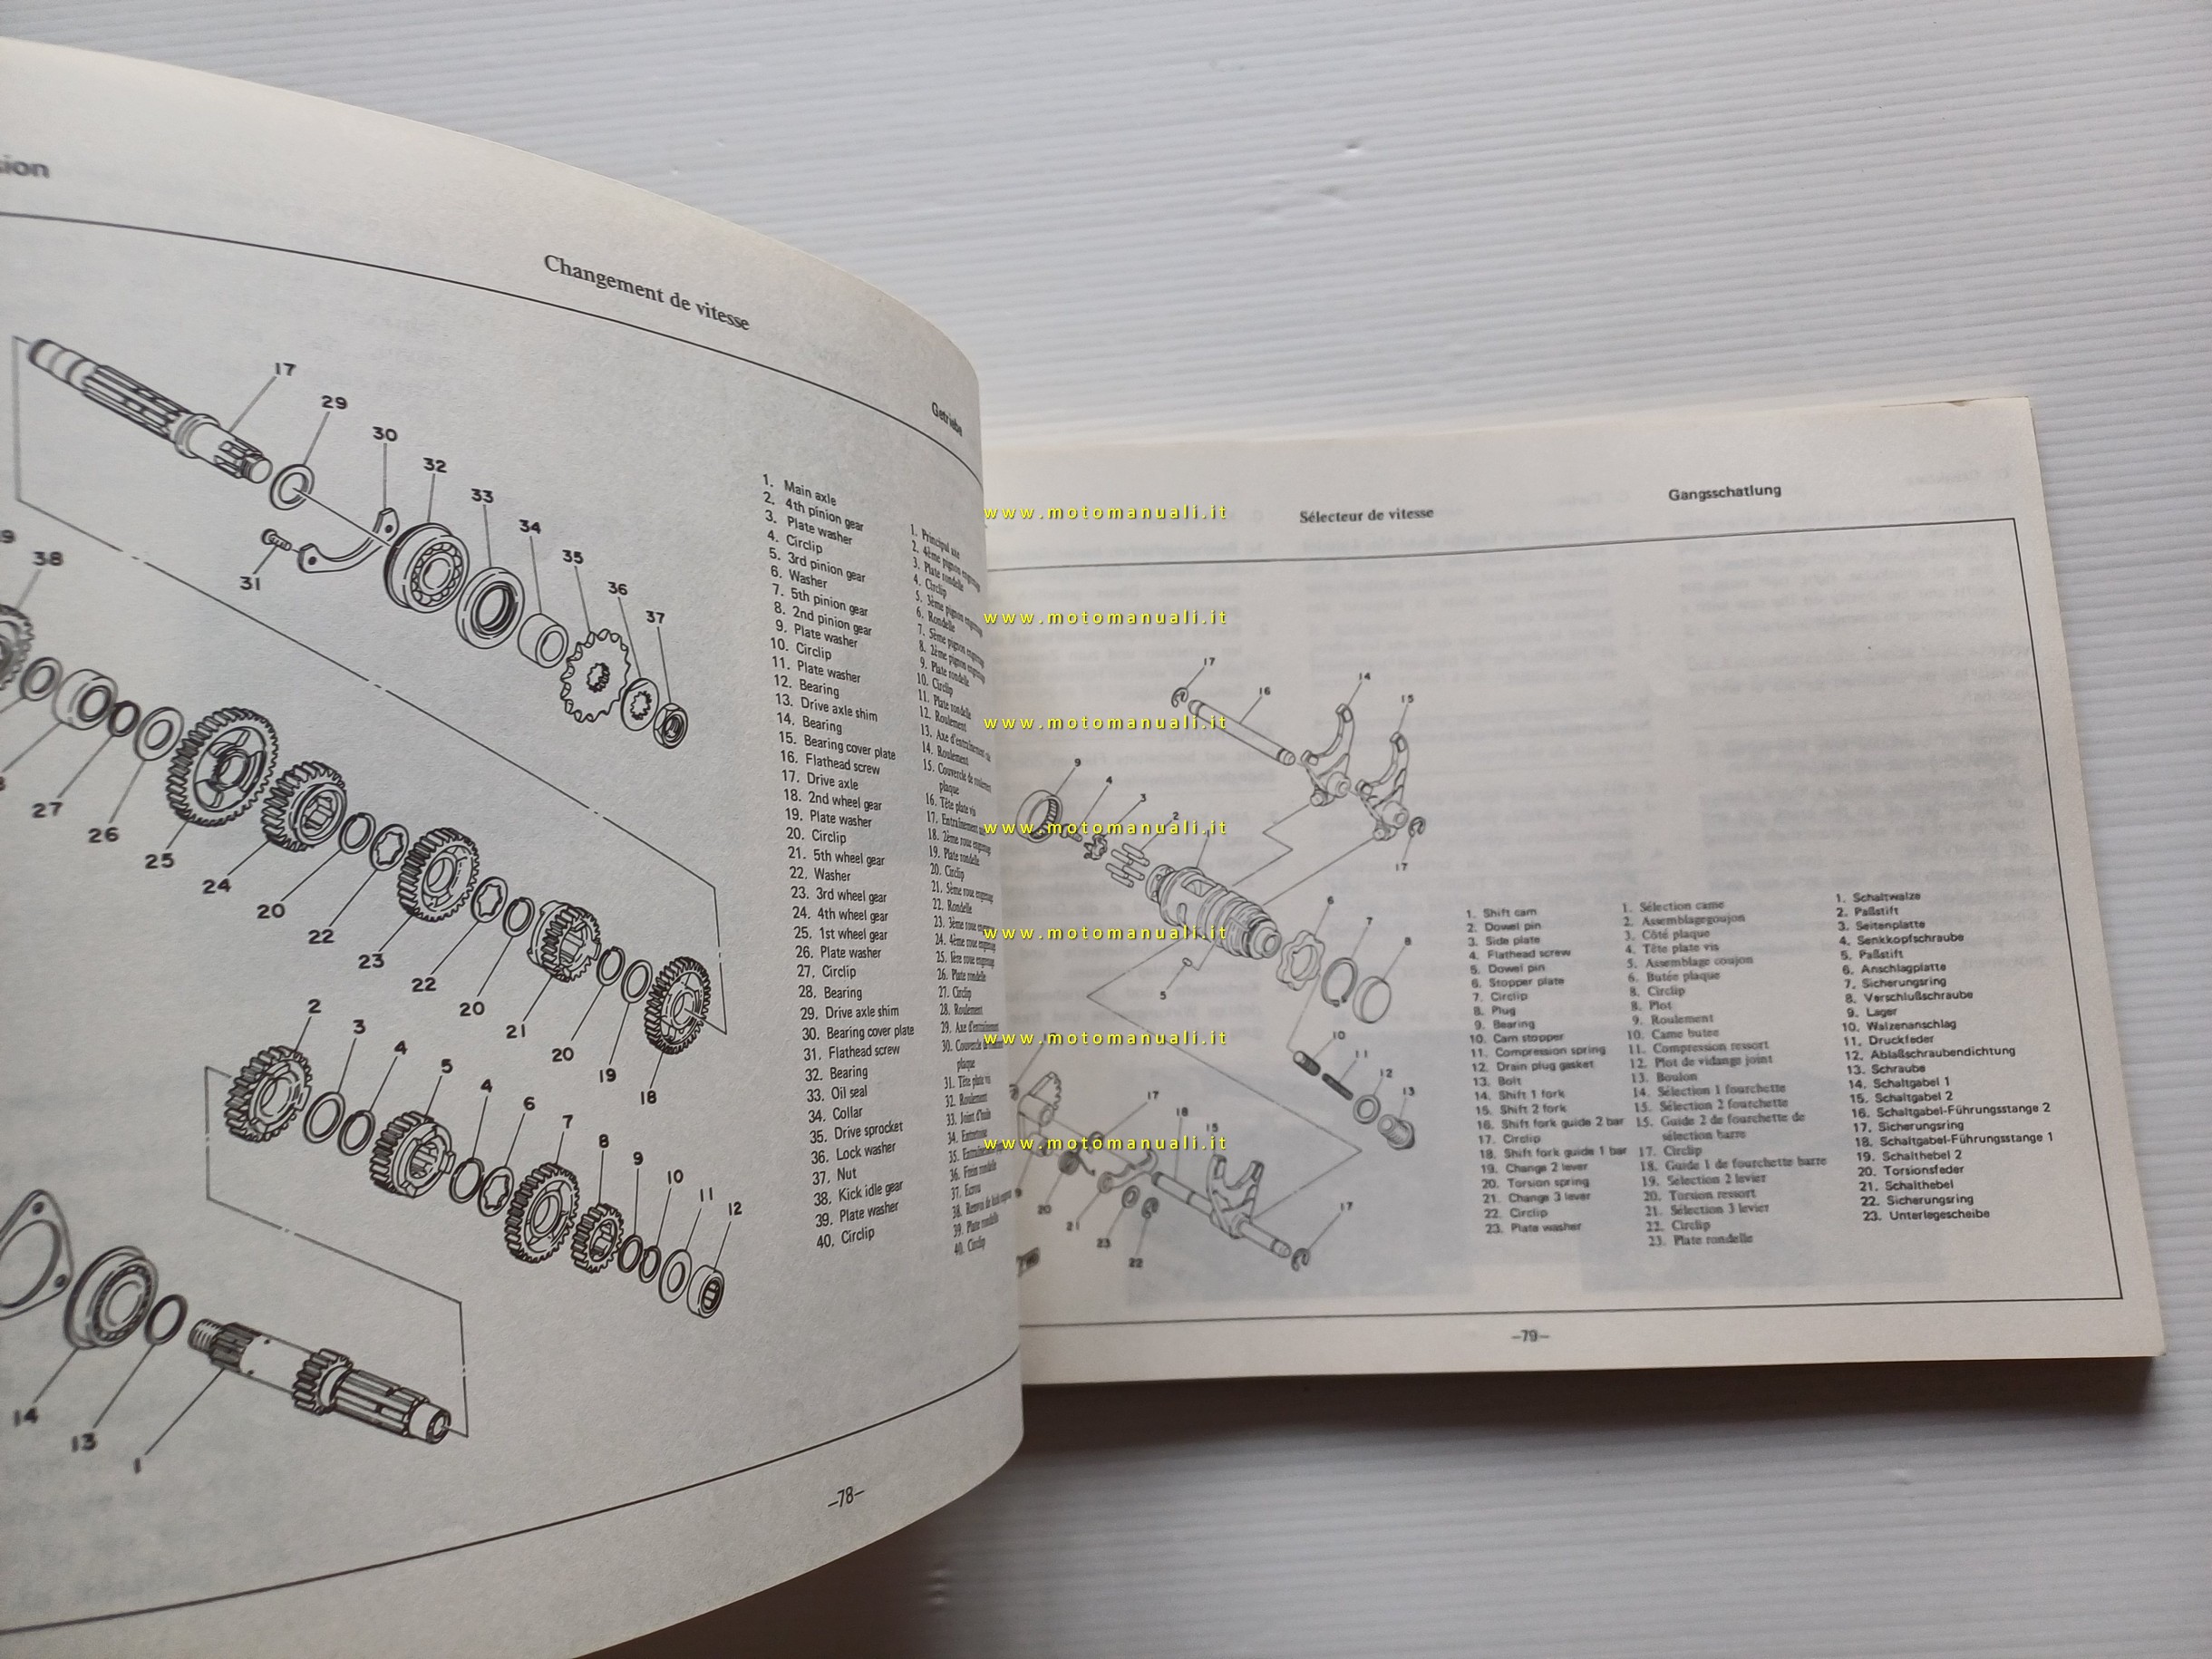 Changement de vitesse
Getriebe
17
29
30
32
33
34
35
36
37
31
38
27
26
25
24
20
22
23
22
20
21
20
19
18
2
3
4
5
4
6
7
8
9
10
11
12
14
13
1
1. Main axle
2. 4th pinion gear
3. Plate washer
4. Circlip
5. 3rd pinion gear
6. Washer
7. 5th pinion gear
8. 2nd pinion gear
9. Plate washer
10. Circlip
11. Plate washer
12. Bearing
13. Drive axle shim
14. Bearing
15. Bearing cover plate
16. Flathead screw
17. Drive axle
18. 2nd wheel gear
19. Plate washer
20. Circlip
21. 5th wheel gear
22. Washer
23. 3rd wheel gear
24. 4th wheel gear
25. 1st wheel gear
26. Plate washer
27. Circlip
28. Bearing
29. Drive axle shim
30. Bearing cover plate
31. Flathead screw
32. Bearing
33. Oil seal
34. Collar
35. Drive sprocket
36. Lock washer
37. Nut
38. Kick idle gear
39. Plate washer
40. Circlip
1. Principal axe
2. 4ème pignon
3. Plate rondelle
4. Circlip
5. 3ème pignon
6. Rondelle
7. 5ème pignon
8. 2ème pignon
9. Plate rondelle
10. Circlip
11. Plate rondelle
12. Roulement
13. Axe d'entraînement
14. Roulement
15. Couvercle de roulement
plaque
16. Tête plate vis
17. Entraînement
18. 2ème roue
19. Plate rondelle
20. Circlip
21. 5ème roue
22. Rondelle
23. 3ème roue
24. 4ème roue
25. 1ère roue
26. Plate rondelle
27. Circlip
28. Roulement
29. Axe d'entraînement
30. Couvercle
plaque
31. Tête plate vis
32. Roulement
33. Joint d'huile
34. Entretoise
35.
36. Frein rondelle
37. Ecrou
38. Renvoi de kick
39. Plate rondelle
40. Circlip
–78–
Sélecteur de vitesse
Gangsschatlung
www.motomanuali.it
www.motomanuali.it
www.motomanuali.it
www.motomanuali.it
www.motomanuali.it
www.motomanuali.it
www.motomanuali.it
17
16
14
15
9
4
3
2
1
17
6
7
8
5
10
11
12
13
17
18
15
20
21
23
22
17
1. Shift cam
2. Dowel pin
3. Side plate
4. Flathead screw
5. Dowel pin
6. Stopper plate
7. Circlip
8. Plug
9. Bearing
10. Cam stopper
11. Compression spring
12. Drain plug gasket
13. Bolt
14. Shift 1 fork
15. Shift 2 fork
16. Shift fork guide 2 bar
17. Circlip
18. Shift fork guide 1 bar
19. Change 2 lever
20. Torsion spring
21. Change 3 lever
22. Circlip
23. Plate washer
1. Sélection came
2. Assemblagegoujon
3. Côté plaque
4. Tête plate vis
5. Assemblage coujon
6. Butée plaque
8. Circlip
8. Plot
9. Roulement
10. Came butee
11. Compression ressort
12. Plot de vidange joint
13. Boulon
14. Sélection 1 fourchette
15. Sélection 2 fourchette
15. Guide 2 de fourchette de
sélection barre
17. Circlip
18. Guide 1 de fourchette barre
19. Sélection 2 levier
20. Torsion ressort
21. Sélection 3 levier
22. Circlip
23. Plate rondelle
1. Schaltwalze
2. Paßstift
3. Seitenplatte
4. Senkkopfschraube
5. Paßstift
6. Anschlagplatte
7. Sicherungsring
8. Verschlußschraube
9. Lager
10. Walzenanschlag
11. Druckfeder
12. Ablaßschraubendichtung
13. Schraube
14. Schaltgabel 1
15. Schaltgabel 2
16. Schaltgabel-Führungsstange 2
17. Sicherungsring
18. Schaltgabel-Führungsstange 1
19. Schalthebel 2
20. Torsionsfeder
21. Schalthebel
22. Sicherungsring
23. Unterlegescheibe
–79–